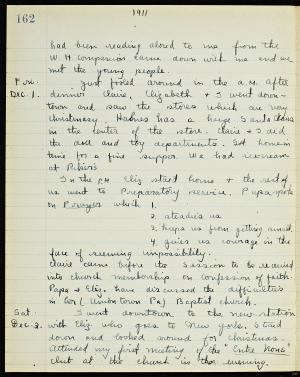 162
1911
had been reading aloud to me from the
came down with me and we
met the young people.
Fri. Just fooled around in the a.m. After
Dec. 1. dinner Claire, Elizabeth & I went down-
town and saw the stores which are very
Christmasy. Hahnes has a huge Santa Claus
in the center of the store. Claire & I did
the doll and toy departments. Got home in
time for a fine supper. We had icecream
at
In the p.m. Eliz. stayed home & the rest of
us went to Preparatory Service. Papa spoke
on Prayer which 1.
2. steadies us
3. keeps us from getting
4. gives us courage in the
face of seeming impossibility.
Claire came before the Session to be received
into church membership on confession of faith.
Papa & Eliz. have discussed the difficulties
in Cor (Uniontown Pa) Baptist church.
Sat. I went downtown to the new station
Dec. 2. with Eliz who goes to New York. I sat
down and looked around for Christmas.
Attended my first meeting of the "Entre Nous"
club at the church in the evening.